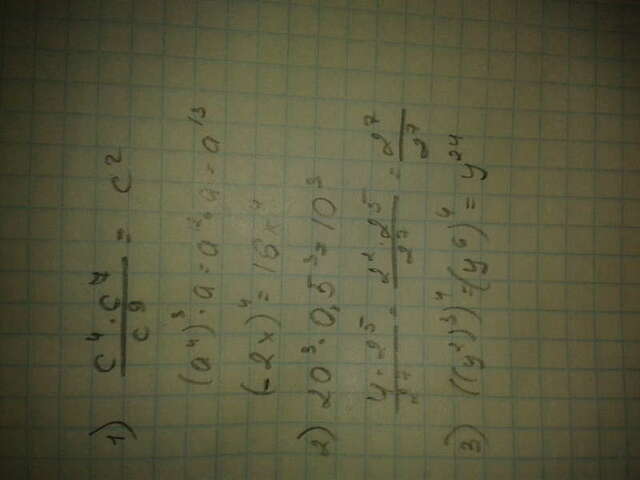 1) c⁴ · c⁷ / c⁹ = c²
(a⁴)³ · a = a · a = a¹³
(-2x)⁴ = 16x⁴
2) 20³ · 0,5³ = 10³
4 · 2⁵ / 2⁷ = 2² · 2⁵ / 2⁷ = 2⁷ / 2⁷
3) ((y²)³)⁴ = (y⁶)⁴ = y²⁴